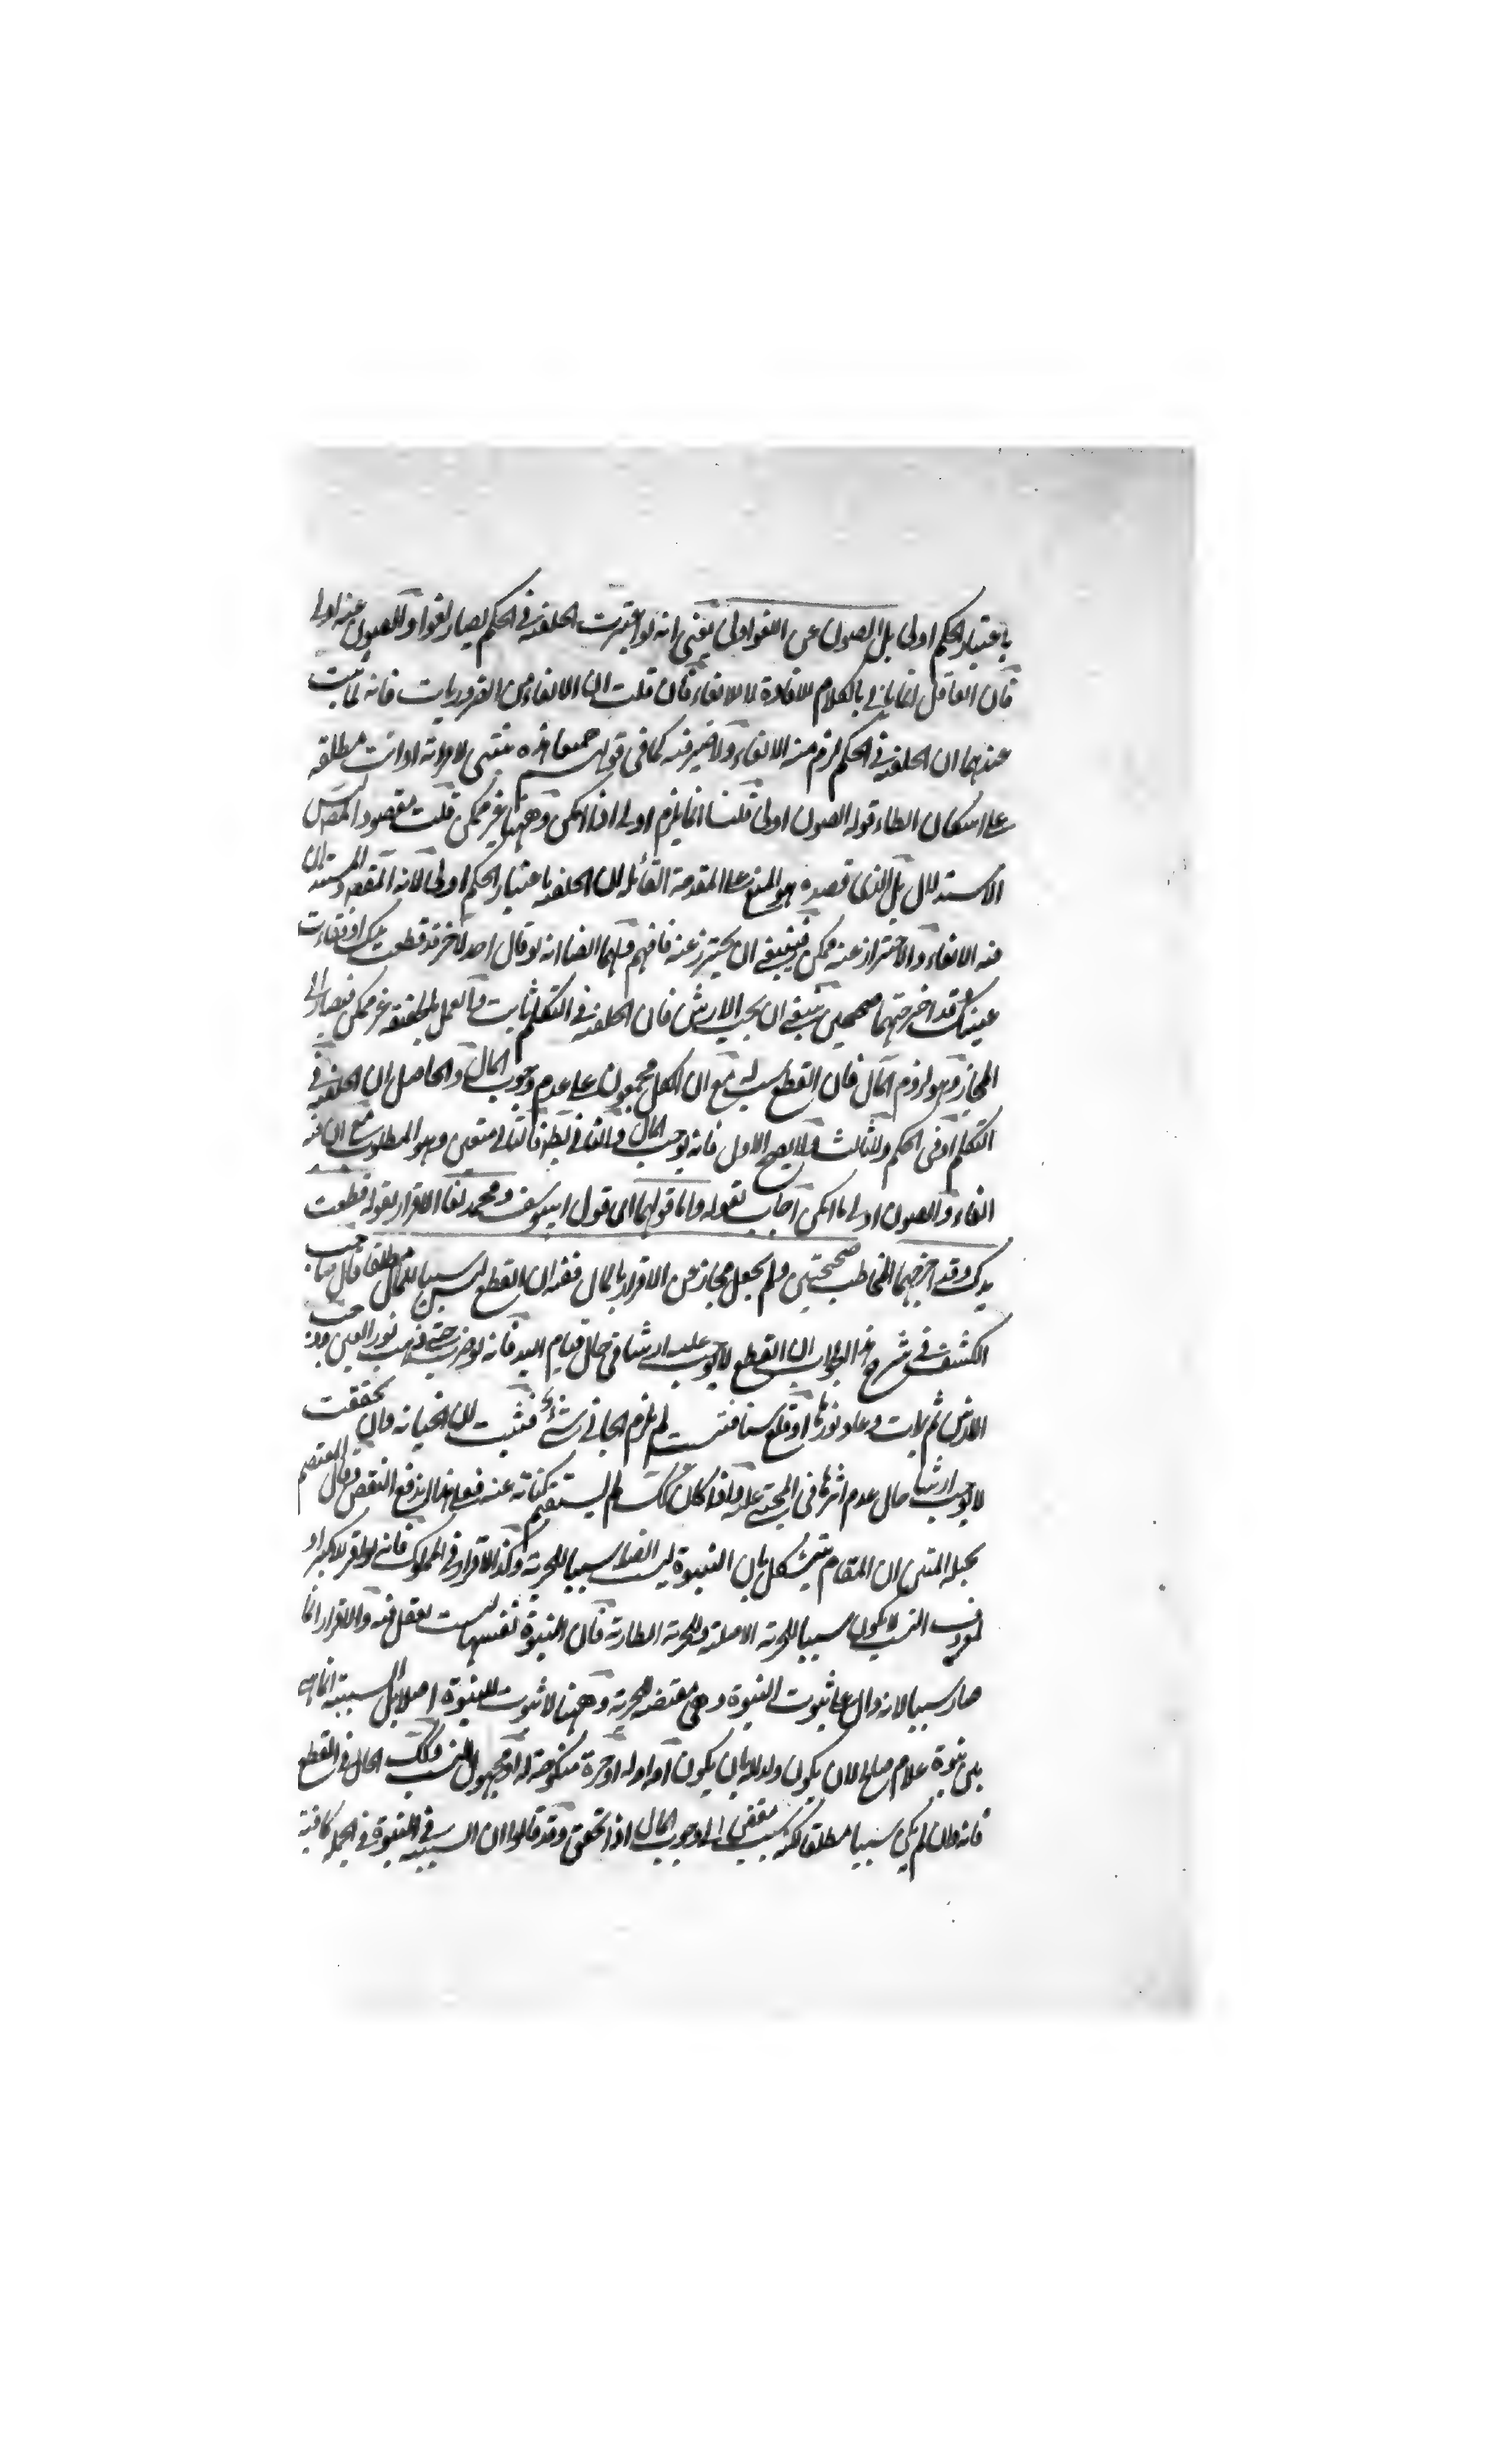 باعتبار الحكم اولى بل الصون عن اللغو اولى يعنى انه لو اعتبرت الخلفية فى الحكم لصار لغوا والصون عنه اولى
فان العاقل انما ياتى بالكلام للافادة لا للالغاء فان قلت ان الالغاء من الضروريات فانه لما ثبت
عندهما ان الخلفية فى الحكم لزم منه الالغاء ولا ضير فيه كما فى قولهم جميعا هذه بنتى لامراته او انت مطلقة
على اسكان الطاء قوله الصون اولى قلنا انما يلزم اولى اذا امكن وههنا غير ممكن قلت مقصود المص ليس
الاستدلال بل الذى قصده هو المنع على المقدمة القائلة ان الخلفية باعتبار الحكم اولى لانه المقصود المستدل
فيه الالغاء والاحتراز عنه ممكن فينبغى ان يحترز عنه فافهم ولهما ايضا انه لو قال احد لاخر قد قطعت يدك او فقات
عينك وقد اخرجتهما صحيحين ينبغى ان يجب الارش فان الخلفية فى التكلم ثابت والعمل بالحقيقة غير ممكن فيصار الى
المجاز وهو لزوم المال فان القطع سببه مع ان الكل مجمعون على عدم وجوب المال والحاصل ان الخلفية فى
التكلم او فى الحكم ولا ثالث ولا يصح الاول فانه يوجب المال والثانى متعين وهو المطلوب مع ان فيه
الغاء والصون اولى ما امكن اجاب بقوله واما قولهما اى قول ابيوسف ومحمد لغا الاقرار بقوله قطعت
يدك وقد اخرجهما المخاطب صحيحتين ولم يجعل مجازا عن الاقرار بالمال ففيه ان القطع ليس سببا للمال مطلقا قال صاحب
الكشف فى شرح هذا الجواب ان القطع لا يوجب عليه ارشا فى حال قيام اليد فانه لو ضرب حتى ذهب نور العين وجب
الارش ثم برات وعاد نورها او قلع سنا فنبتت لم يلزم الجانى شئ فثبت ان الجناية وان تحققت
لا يوجب ارشا حال عدم اثرها فى المجنى عليه واذا كان كك لم يستقم كناية عنه فعلى هذا اندفع النقض وقال المعتصم
بحبله المتين ان المقام يتشكل بان البنوة ليست ايضا سببا للحرية وكذا الاقرار فى المملوك فانه لو اقر للاكبر او
لمعروف النسب لا يكون سببا للحرية الاصلية وللحرية الطارية فان البنوة نفسها ليست لعقل فيه والاقرار انما
صار سببا لانه دال على ثبوت البنوة وهى مقتضية للحرية وههنا لا ثبوت للبنوة اصلا بل السببية انما هى
بين بنوة غلام صلح لان يكون ولدا له بان يكون امه او حرة منكوحة له او مجهول النسب وكك الحال فى القطع
فانه وان لم يكن سببا مطلقا لكنه سبب مفض الى وجوب المال اذا تحقق وقد قالوا ان السببية فى البنوة فى الجملة كافية